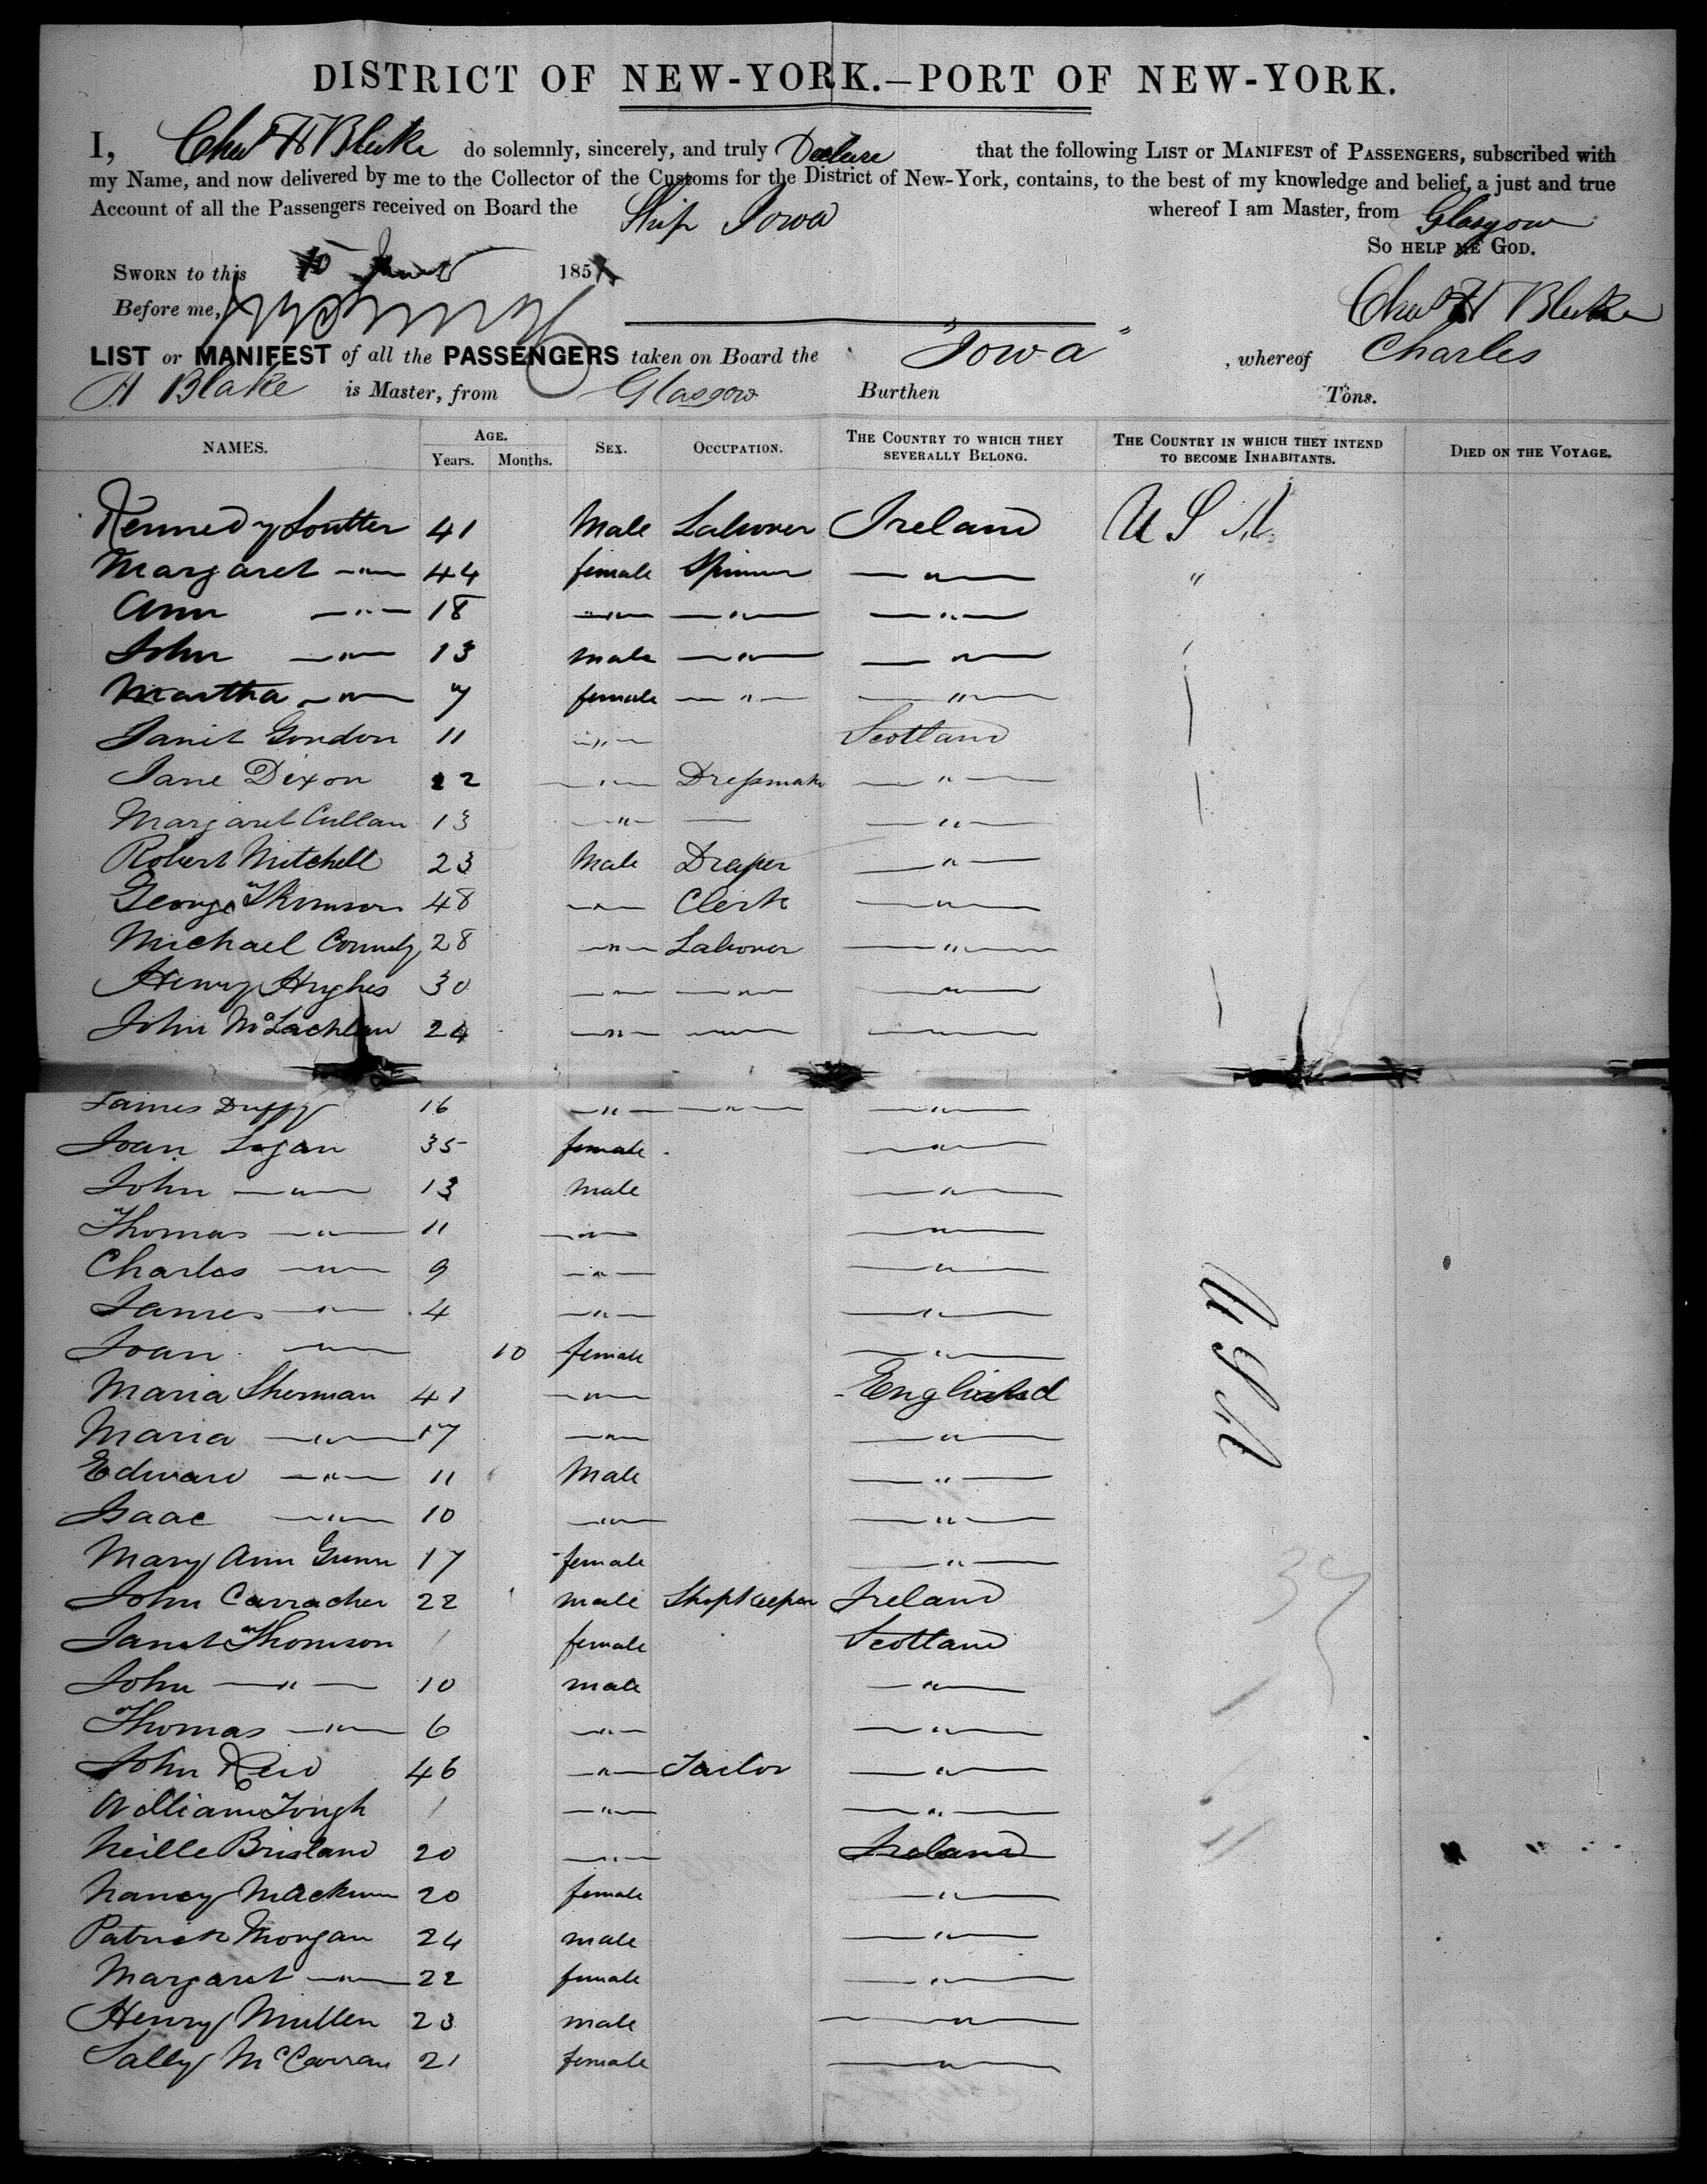 DISTRICT OF NEW-YORK.—PORT OF NEW-YORK.
I, Chas H Blake do solemnly, sincerely, and truly Declare that the following LIST or MANIFEST of PASSENGERS, subscribed with
my Name, and now delivered by me to the Collector of the Customs for the District of New-York, contains, to the best of my knowledge and belief, a just and true
Account of all the Passengers received on Board the Ship Iowa whereof I am Master, from Glasgow
SO HELP ME GOD.
SWORN to this 185
Before me, Chas H Blake
LIST or MANIFEST of all the PASSENGERS taken on Board the "Iowa" , whereof Charles
H Blake is Master, from Glasgow Burthen Tons.
NAMES. AGE. Years. Months. SEX. OCCUPATION. THE COUNTRY TO WHICH THEY SEVERALLY BELONG. THE COUNTRY IN WHICH THEY INTEND TO BECOME INHABITANTS. DIED ON THE VOYAGE.
Kennedy Soutter 41 Male Laborer Ireland U S A.
Margaret —"— 44 female Spinner —"— "
Ann —"— 18 —"— —"— —"—
John —"— 13 male —"— —"—
Martha —"— 7 female —"— —"—
Janet Gordon 11 —"— Scotland
Jane Dixon 22 —"— Dressmaker —"—
Margaret Cullan 13 —"— — —"—
Robert Mitchell 23 Male Draper —"—
George Thomson 48 —"— Clerk —"—
Michael Connely 28 —"— Laborer —"—
Henry Hughes 30 —"— —"— —"—
John McLachlan 24 —"— —"— —"—
James Duffy 16 —"— —"— —"—
Joan Logan 35 female —"—
John —"— 13 male —"—
Thomas —"— 11 —"— —"—
Charles —"— 9 —"— —"—
James —"— 4 —"— —"—
Joan —"— 10 female —"—
U S A
Maria Sherman 41 —"— England
Maria —"— 17 —"— —"—
Edward —"— 11 Male —"—
Isaac —"— 10 —"— —"—
Mary Ann Gunn 17 female —"—
John Carracher 22 male Shopkeeper Ireland
Janet Thomson / female Scotland
John —"— 10 male —"—
Thomas —"— 6 —"— —"—
John Reid 46 —"— Tailor —"—
William Tough / —"— —"—
Neille Brisland 20 —"— Ireland
Nancy 20 female —"—
Patrick Morgan 24 male —"—
Margaret —"— 22 female —"—
Henry Mullen 23 male —"—
Sally McCarran 21 female —"—